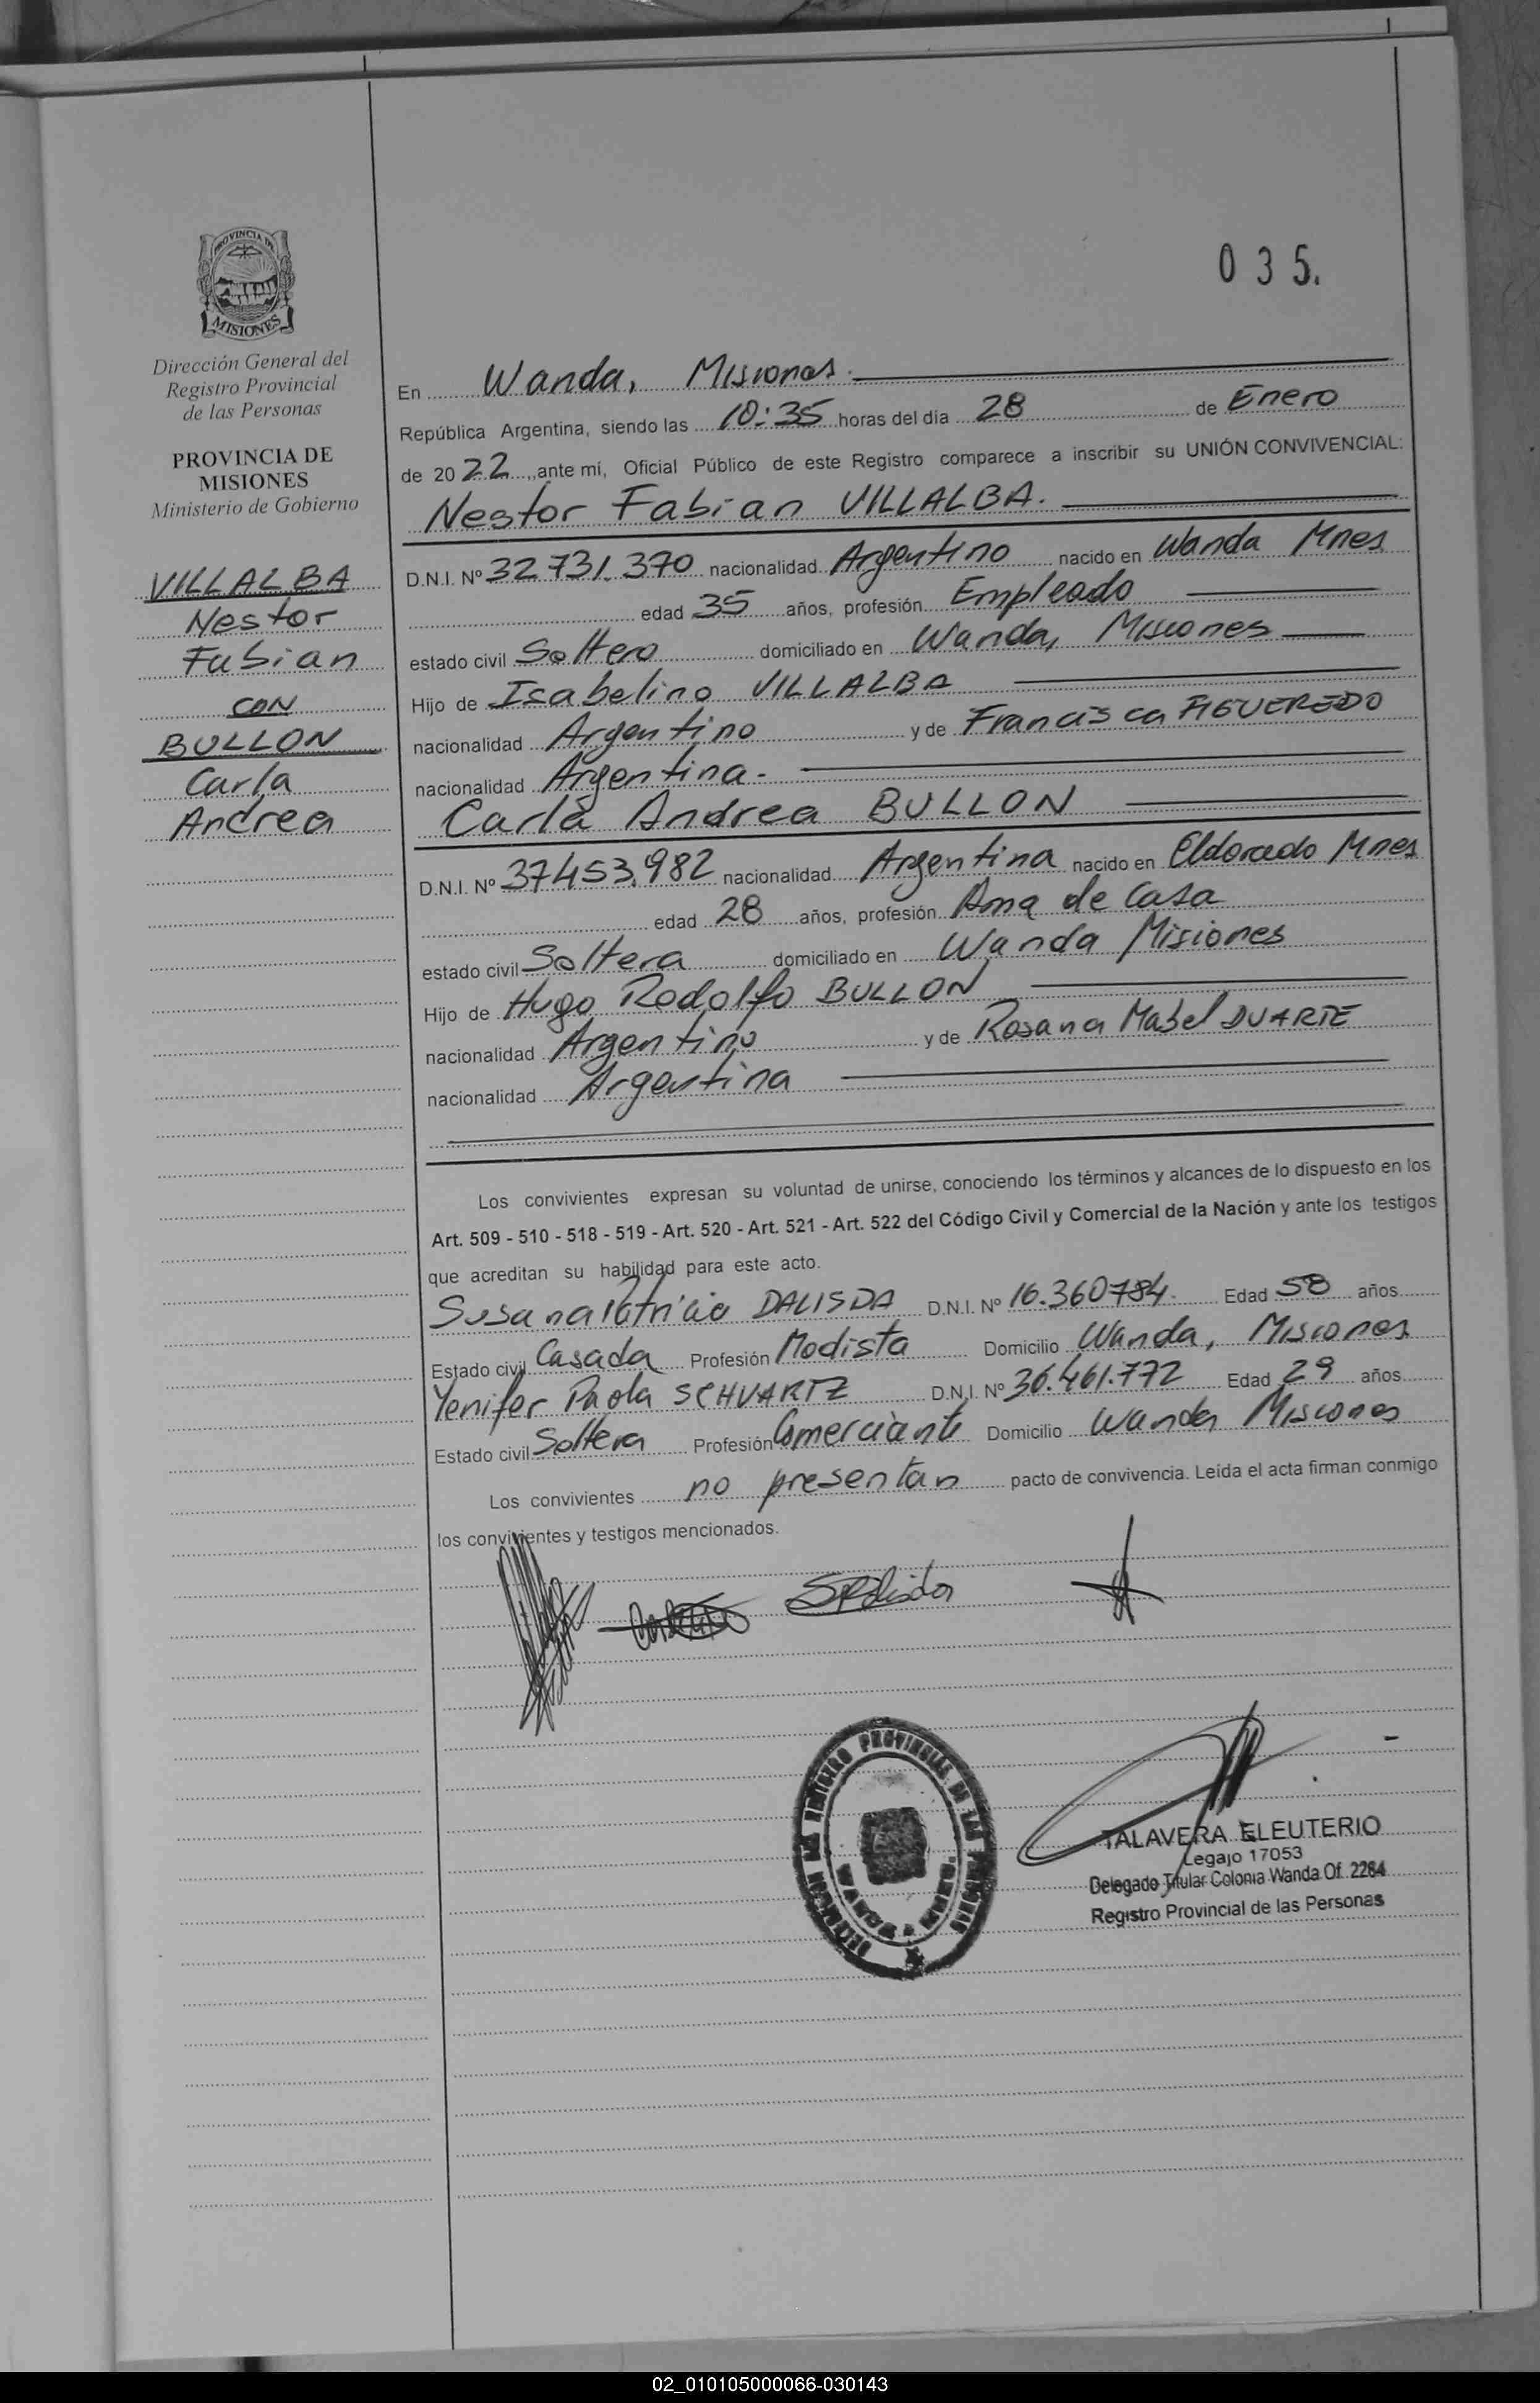 035.
PROVINCIA DE
MISIONES
Dirección General del
Registro Provincial
de las Personas
PROVINCIA DE
MISIONES
Ministerio de Gobierno
VILLALBA
Nestor
Fabian
CON
BULLON
Carla
Andrea
En Wanda, Misiones.
República Argentina, siendo las 10:35 horas del día 28 de Enero
de 2022, ante mí, Oficial Público de este Registro comparece a inscribir su UNIÓN CONVIVENCIAL:
Nestor Fabian VILLALBA.
D.N.I. Nº 32.731.370 nacionalidad Argentino nacido en Wanda Mnes
edad 35 años, profesión Empleado
estado civil Soltero domiciliado en Wanda, Misiones
Hijo de Isabelino VILLALBA
nacionalidad Argentino y de Francisca FIGUEREDO
nacionalidad Argentina.-
Carla Andrea BULLON
D.N.I. Nº 37453.982 nacionalidad Argentina nacido en Eldorado Mnes
edad 28 años, profesión Ama de Casa
estado civil Soltera domiciliado en Wanda Misiones
Hijo de Hugo Rodolfo BULLON
nacionalidad Argentino y de Rosana Mabel DUARTE
nacionalidad Argentina
Los convivientes expresan su voluntad de unirse, conociendo los términos y alcances de lo dispuesto en los
Art. 509 - 510 - 518 - 519 - Art. 520 - Art. 521 - Art. 522 del Código Civil y Comercial de la Nación y ante los testigos
que acreditan su habilidad para este acto.
Susana Patricia DALISDA D.N.I. Nº 16.360784. Edad 58 años
Estado civil Casada Profesión Modista Domicilio Wanda, Misiones
Yenifer Paola SCHVARTZ D.N.I. Nº 36.461.772 Edad 29 años
Estado civil Soltera Profesión Comerciante Domicilio Wanda Misiones
Los convivientes no presentan pacto de convivencia. Leída el acta firman conmigo
los convivientes y testigos mencionados.
REGISTRO PROVINCIAL DE LAS PERSONAS
WANDA
TALAVERA ELEUTERIO
Legajo 17053
Delegado Titular Colonia Wanda Of. 2284
Registro Provincial de las Personas
02_010105000066-030143